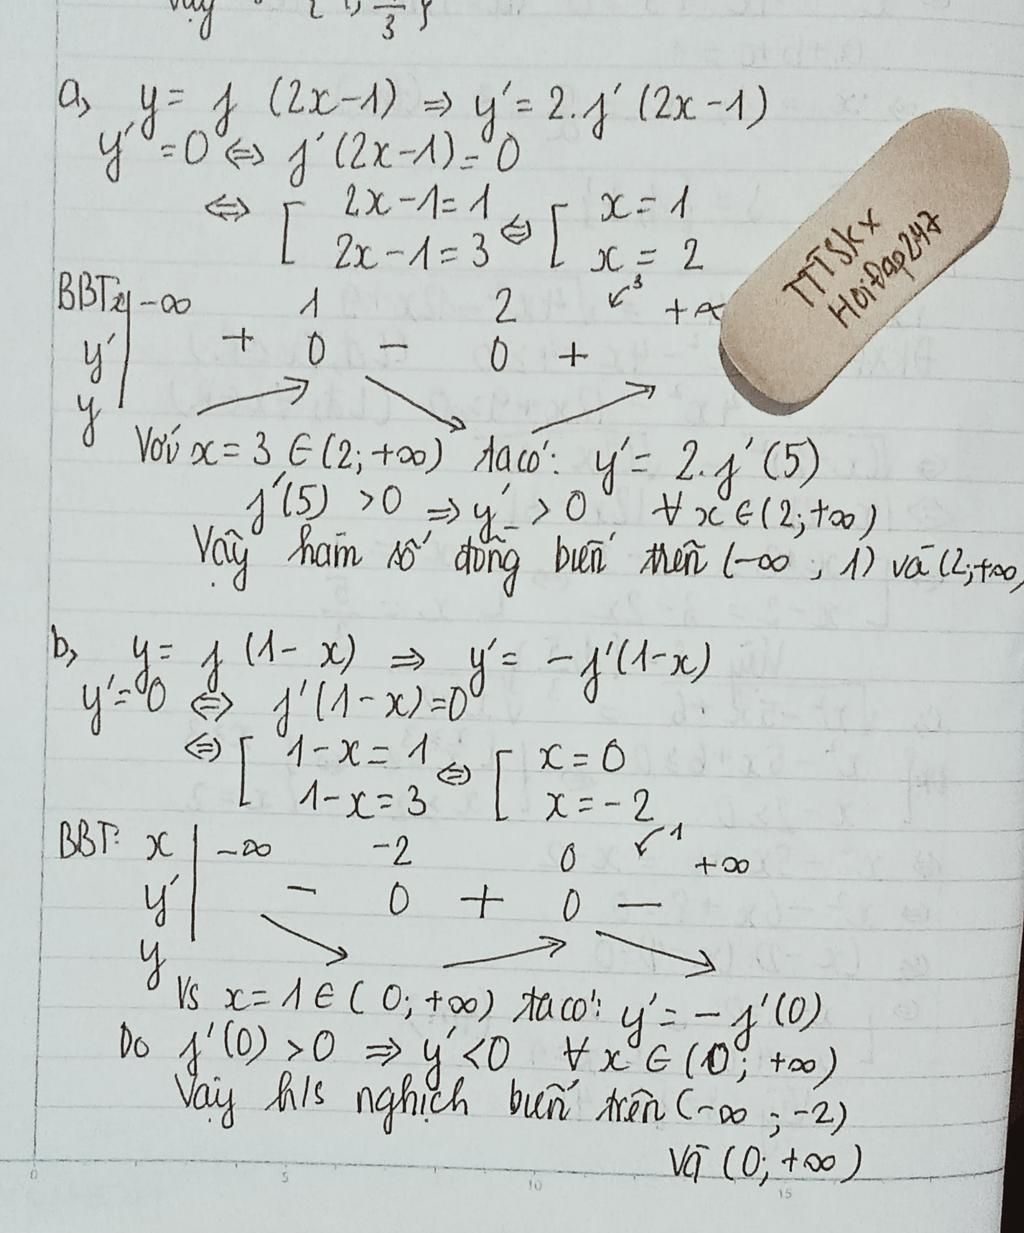 Vậy
3
a, y = f (2x-1) ⇒ y' = 2.f' (2x-1)
y' = 0 ⇔ f'(2x-1) = 0
⇔ [ 2x-1 = 1 ⇔ [ x = 1
2x-1 = 3 x = 2
BBT: x -∞ 1 2 ↙3 +∞
y' + 0 - 0 +
y
Với x = 3 ∈ (2; +∞) ta có: y' = 2.f'(5)
f'(5) > 0 ⇒ y' > 0 ∀x ∈ (2; +∞)
Vậy hàm số đồng biến trên (-∞, 1) và (2; +∞)
b, y = f (1- x) ⇒ y' = -f'(1-x)
y' = 0 ⇔ f'(1-x) = 0
⇔ [ 1-x = 1 ⇔ [ x = 0
1-x = 3 x = -2
BBT: x -∞ -2 0 ↙1 +∞
y' - 0 + 0 -
y
Vs x = 1 ∈ (0; +∞) ta có: y' = -f'(0)
Do f'(0) > 0 ⇒ y' < 0 ∀x ∈ (0; +∞)
Vậy h/s nghịch biến trên (-∞; -2)
và (0; +∞)
TTTSkx
HoiĐap247
0 5 10 15